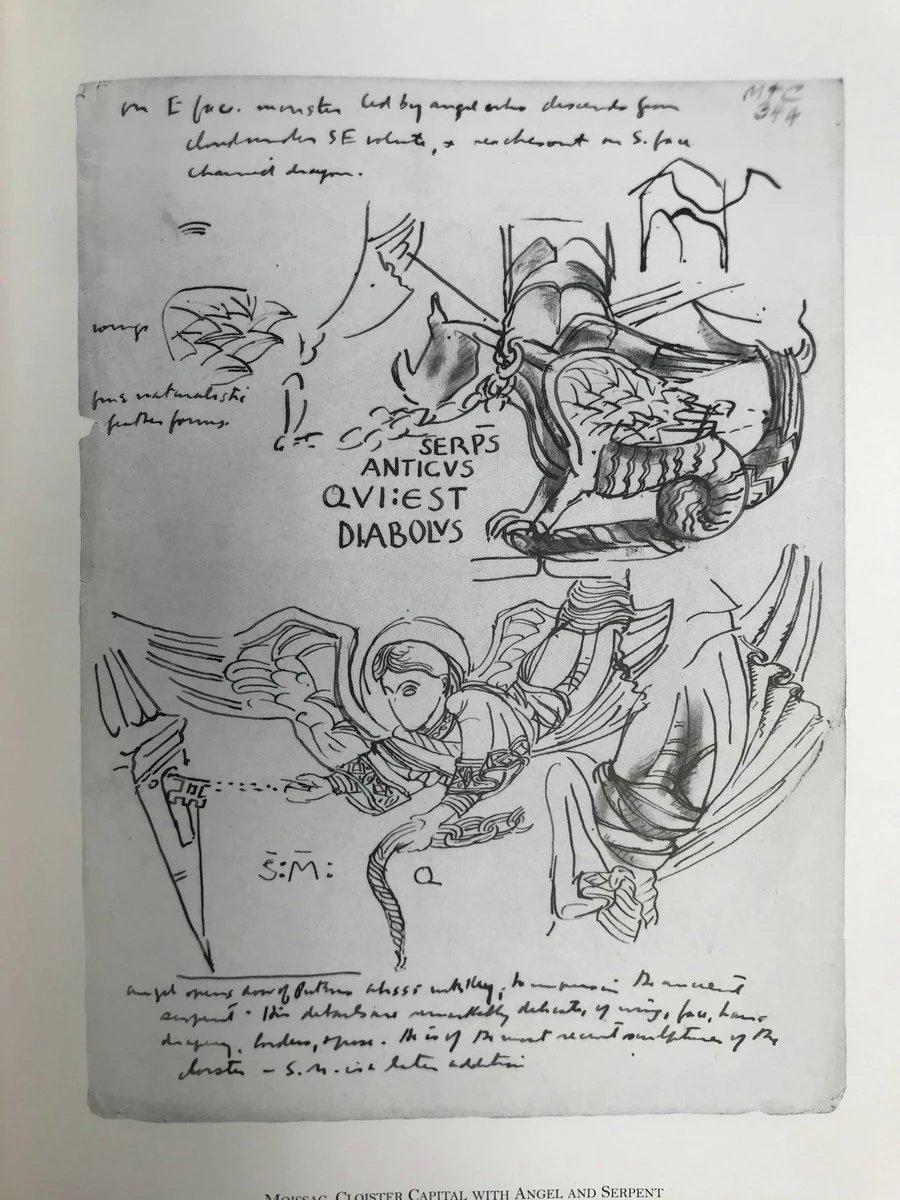 M + C
34A
on E face. monster led by angel who descends from
cloud under SE volute, + reaches out on S. face
chained dragon.
wings
fine naturalistic
feather forms.
SERP̄S
ANTICVS
QVI:EST
DIABOLVS
S̄:M̄:
Q
angel opens door of Puteus abissi with key, to imprison the ancient
serpent. His details are remarkably delicate, of wing, face, hair,
drapery, borders, + pose. He is of the most recent sculptures of the
cloister – S. M. is a later addition
MOISSAC, CLOISTER CAPITAL WITH ANGEL AND SERPENT